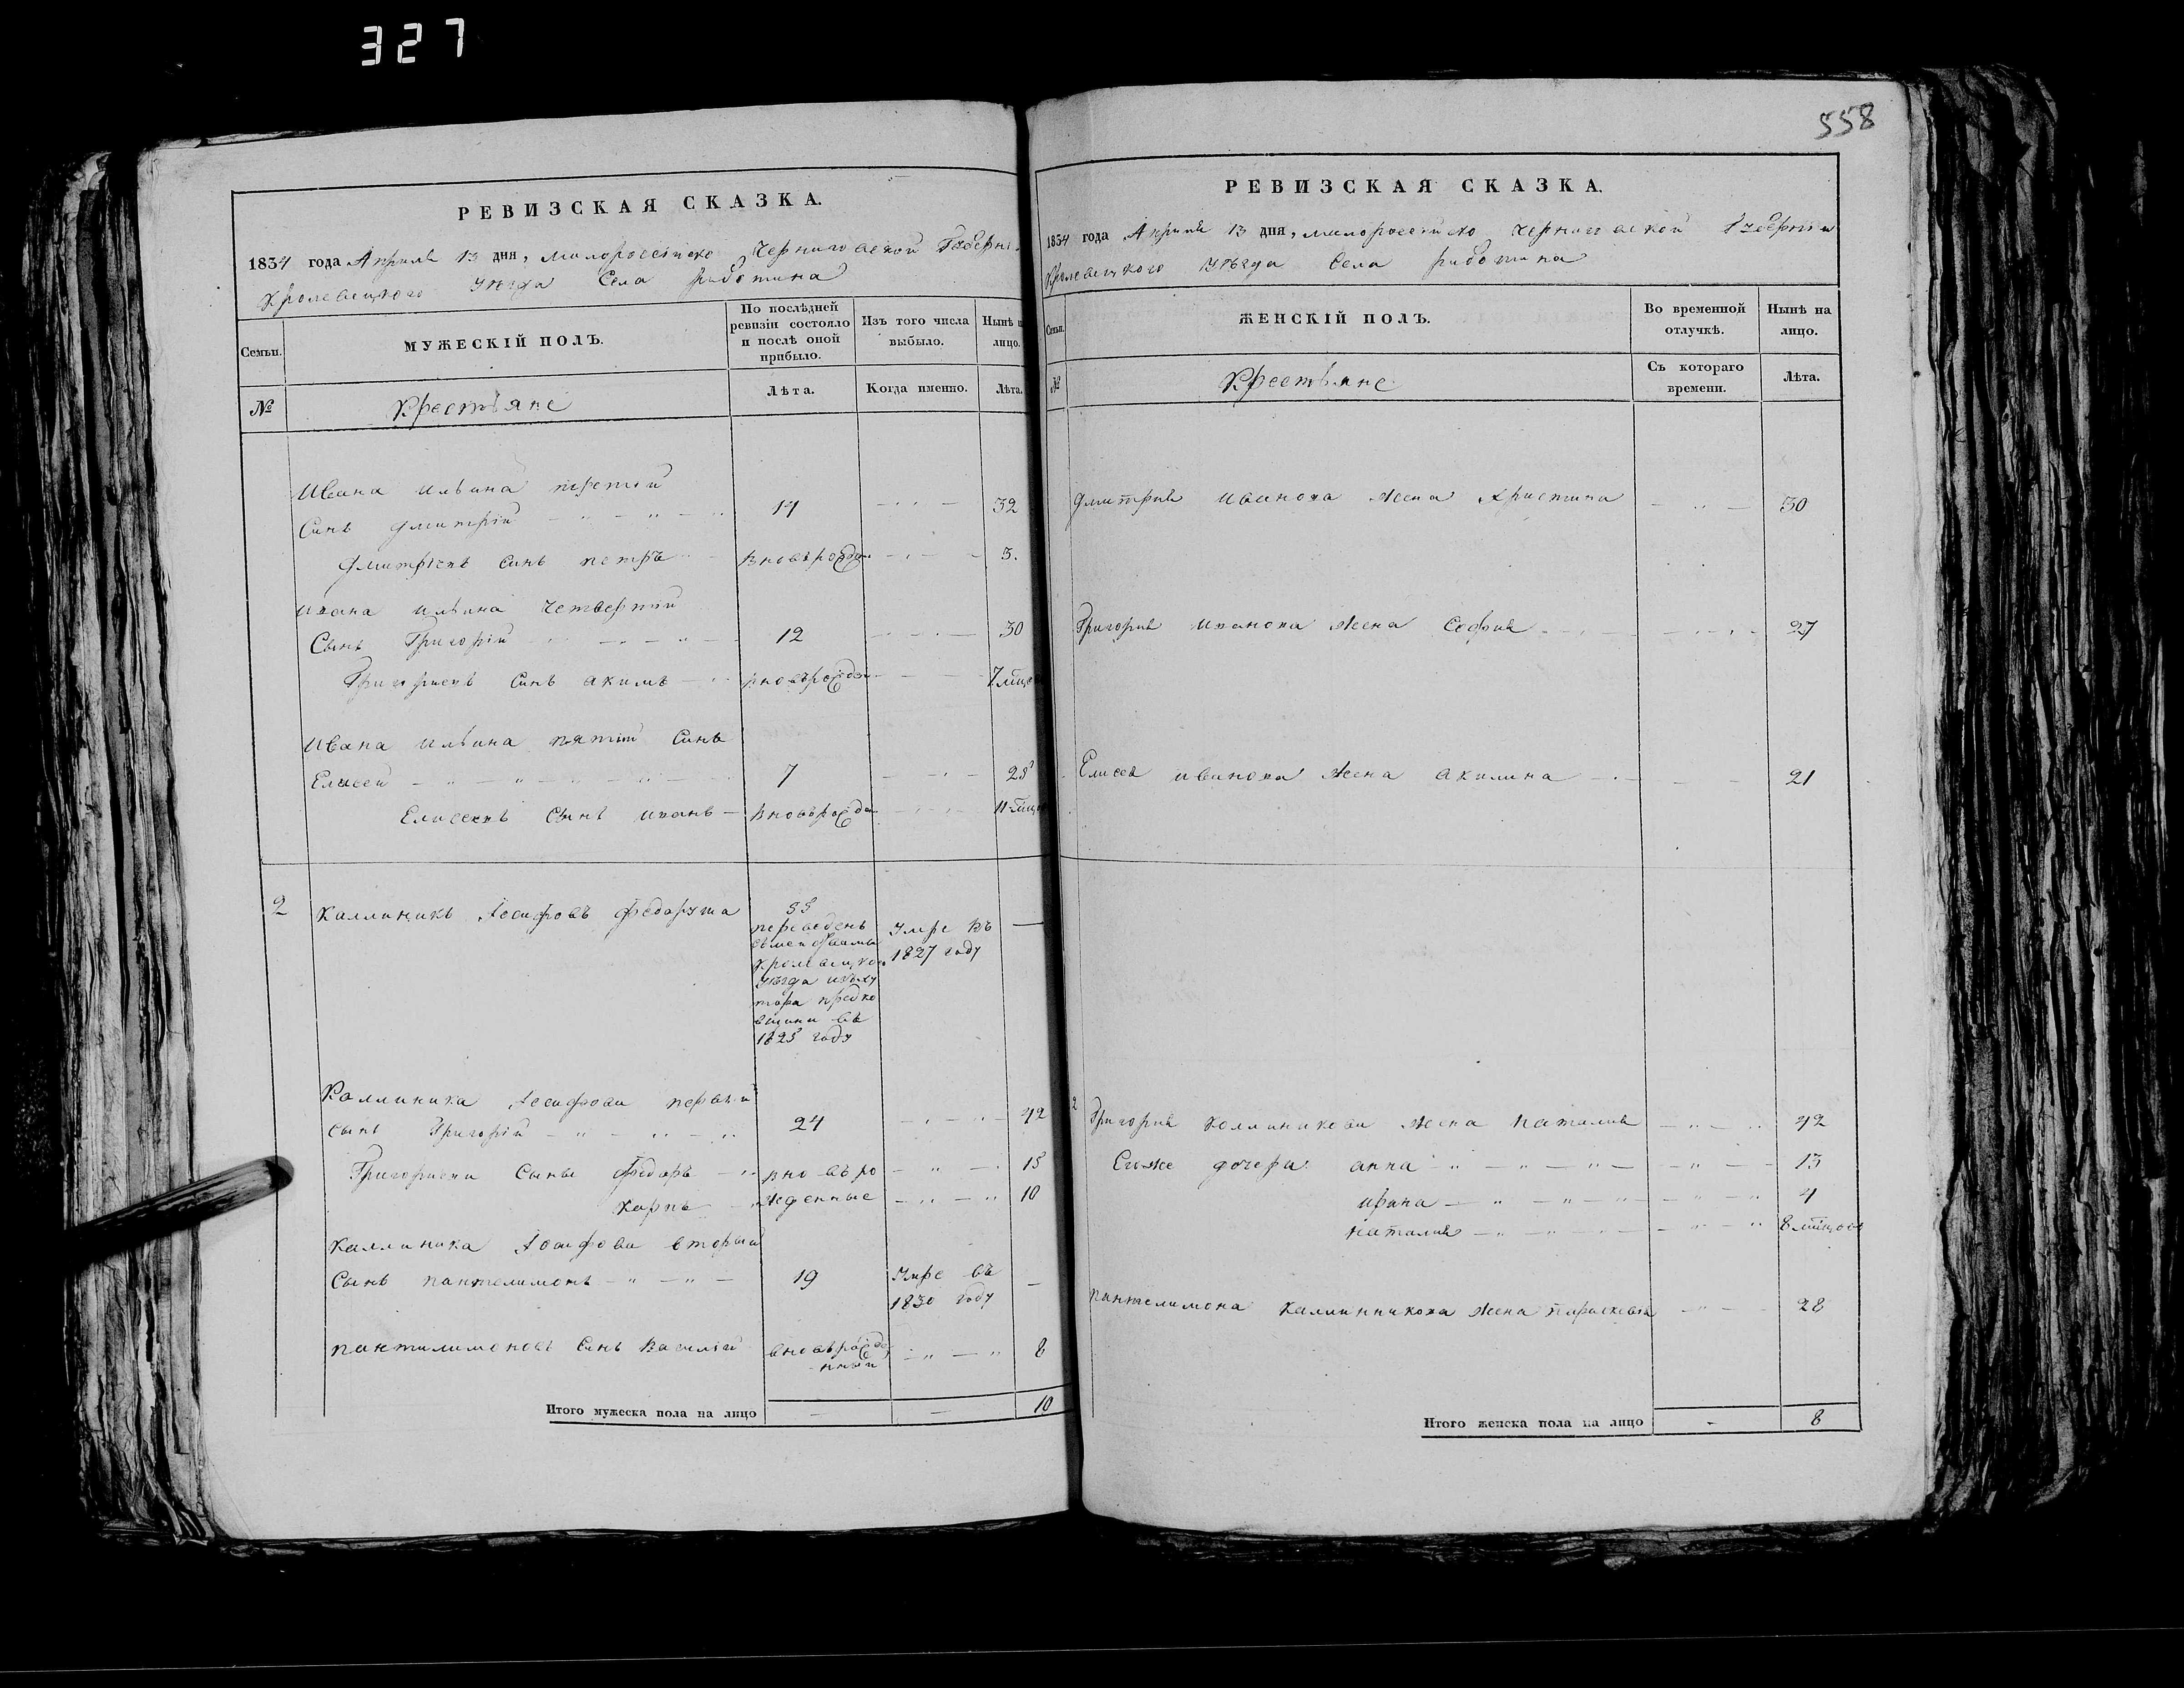 327
РЕВИЗСКАЯ СКАЗКА.
1834 года Апреля 13 дня, малороссийско Черниговской Губерни
Кролевецкого уезда Села риботина
Семьи.
МУЖЕСКІЙ ПОЛЪ.
По послѣдней ревизіи состояло и послѣ оной прибыло.
Изъ того числа выбыло.
Нынѣ н лицо.
№
Крестьяне
Лѣта.
Когда именно.
Лѣта.
Ивана Ильина третій
Синъ Дмитрій 14 32
Дмитріевъ синъ петръ вновьрожден 3.
Ивана Ильина Четвертій
Сынъ Григорій 12 30
Григориевъ Синъ акимъ вновьрожден 7 мцо
Ивана Ильина пятій Синъ
Елисей 7 25
Елисеевъ Сынъ иванъ вновьрожден 11 мцо
2 Каллиникъ Іосифовъ федоруша 55
переведенъ
Кролевецкого
уезда изъ ху
тора предко
вщини въ
1825 году
Умре въ
1827 году
Каллиника Іосифова первый
сынъ Григорій 24 42
Григориеви Сыны Федоръ вновьро 15
Карпъ жденные 10
Каллиника Іосифова вторый
Сынъ пантелимонъ 19 Умре въ
1830 году
пантилимоновъ Синъ Василій вновьрожде
нный 8
Итого мужеска пола на лицо — — 10
558
РЕВИЗСКАЯ СКАЗКА.
1834 года Апреля 13 дня, малороссийско Черниговской Губерніи
Кролевецкого уезда Села риботина
Семьи.
ЖЕНСКІЙ ПОЛЪ.
Во временной отлучкѣ.
Нынѣ на лицо.
№
Крестьяне
Съ котораго времени.
Лѣта.
Дмитрия Иванова жена Христина 30
Григория Иванова жена София 27
Елисея иванова жена акилина 21
2 Григория Коллиникова жена Наталия 42
Егоже дочери анна 13
ирина 4
наталия 8 мцова
пантелимона Каллинникова жена параскевия 28
Итого женска пола на лицо - 8